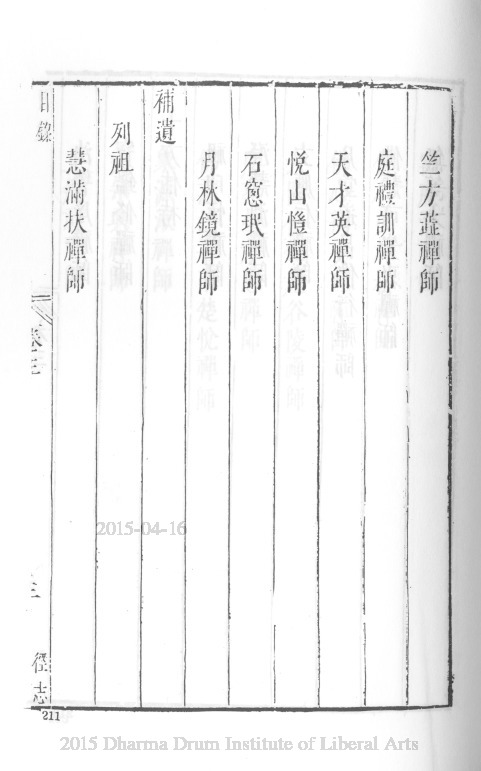 竺方蓮禪師
庭禮訓禪師
天才英禪師
悅山憕禪師
石窓珉禪師
月林鏡禪師
補遺
列祖
慧滿扶禪師
目錄
卷三
三
徑志
211
2015-04-16
2015 Dharma Drum Institute of Liberal Arts